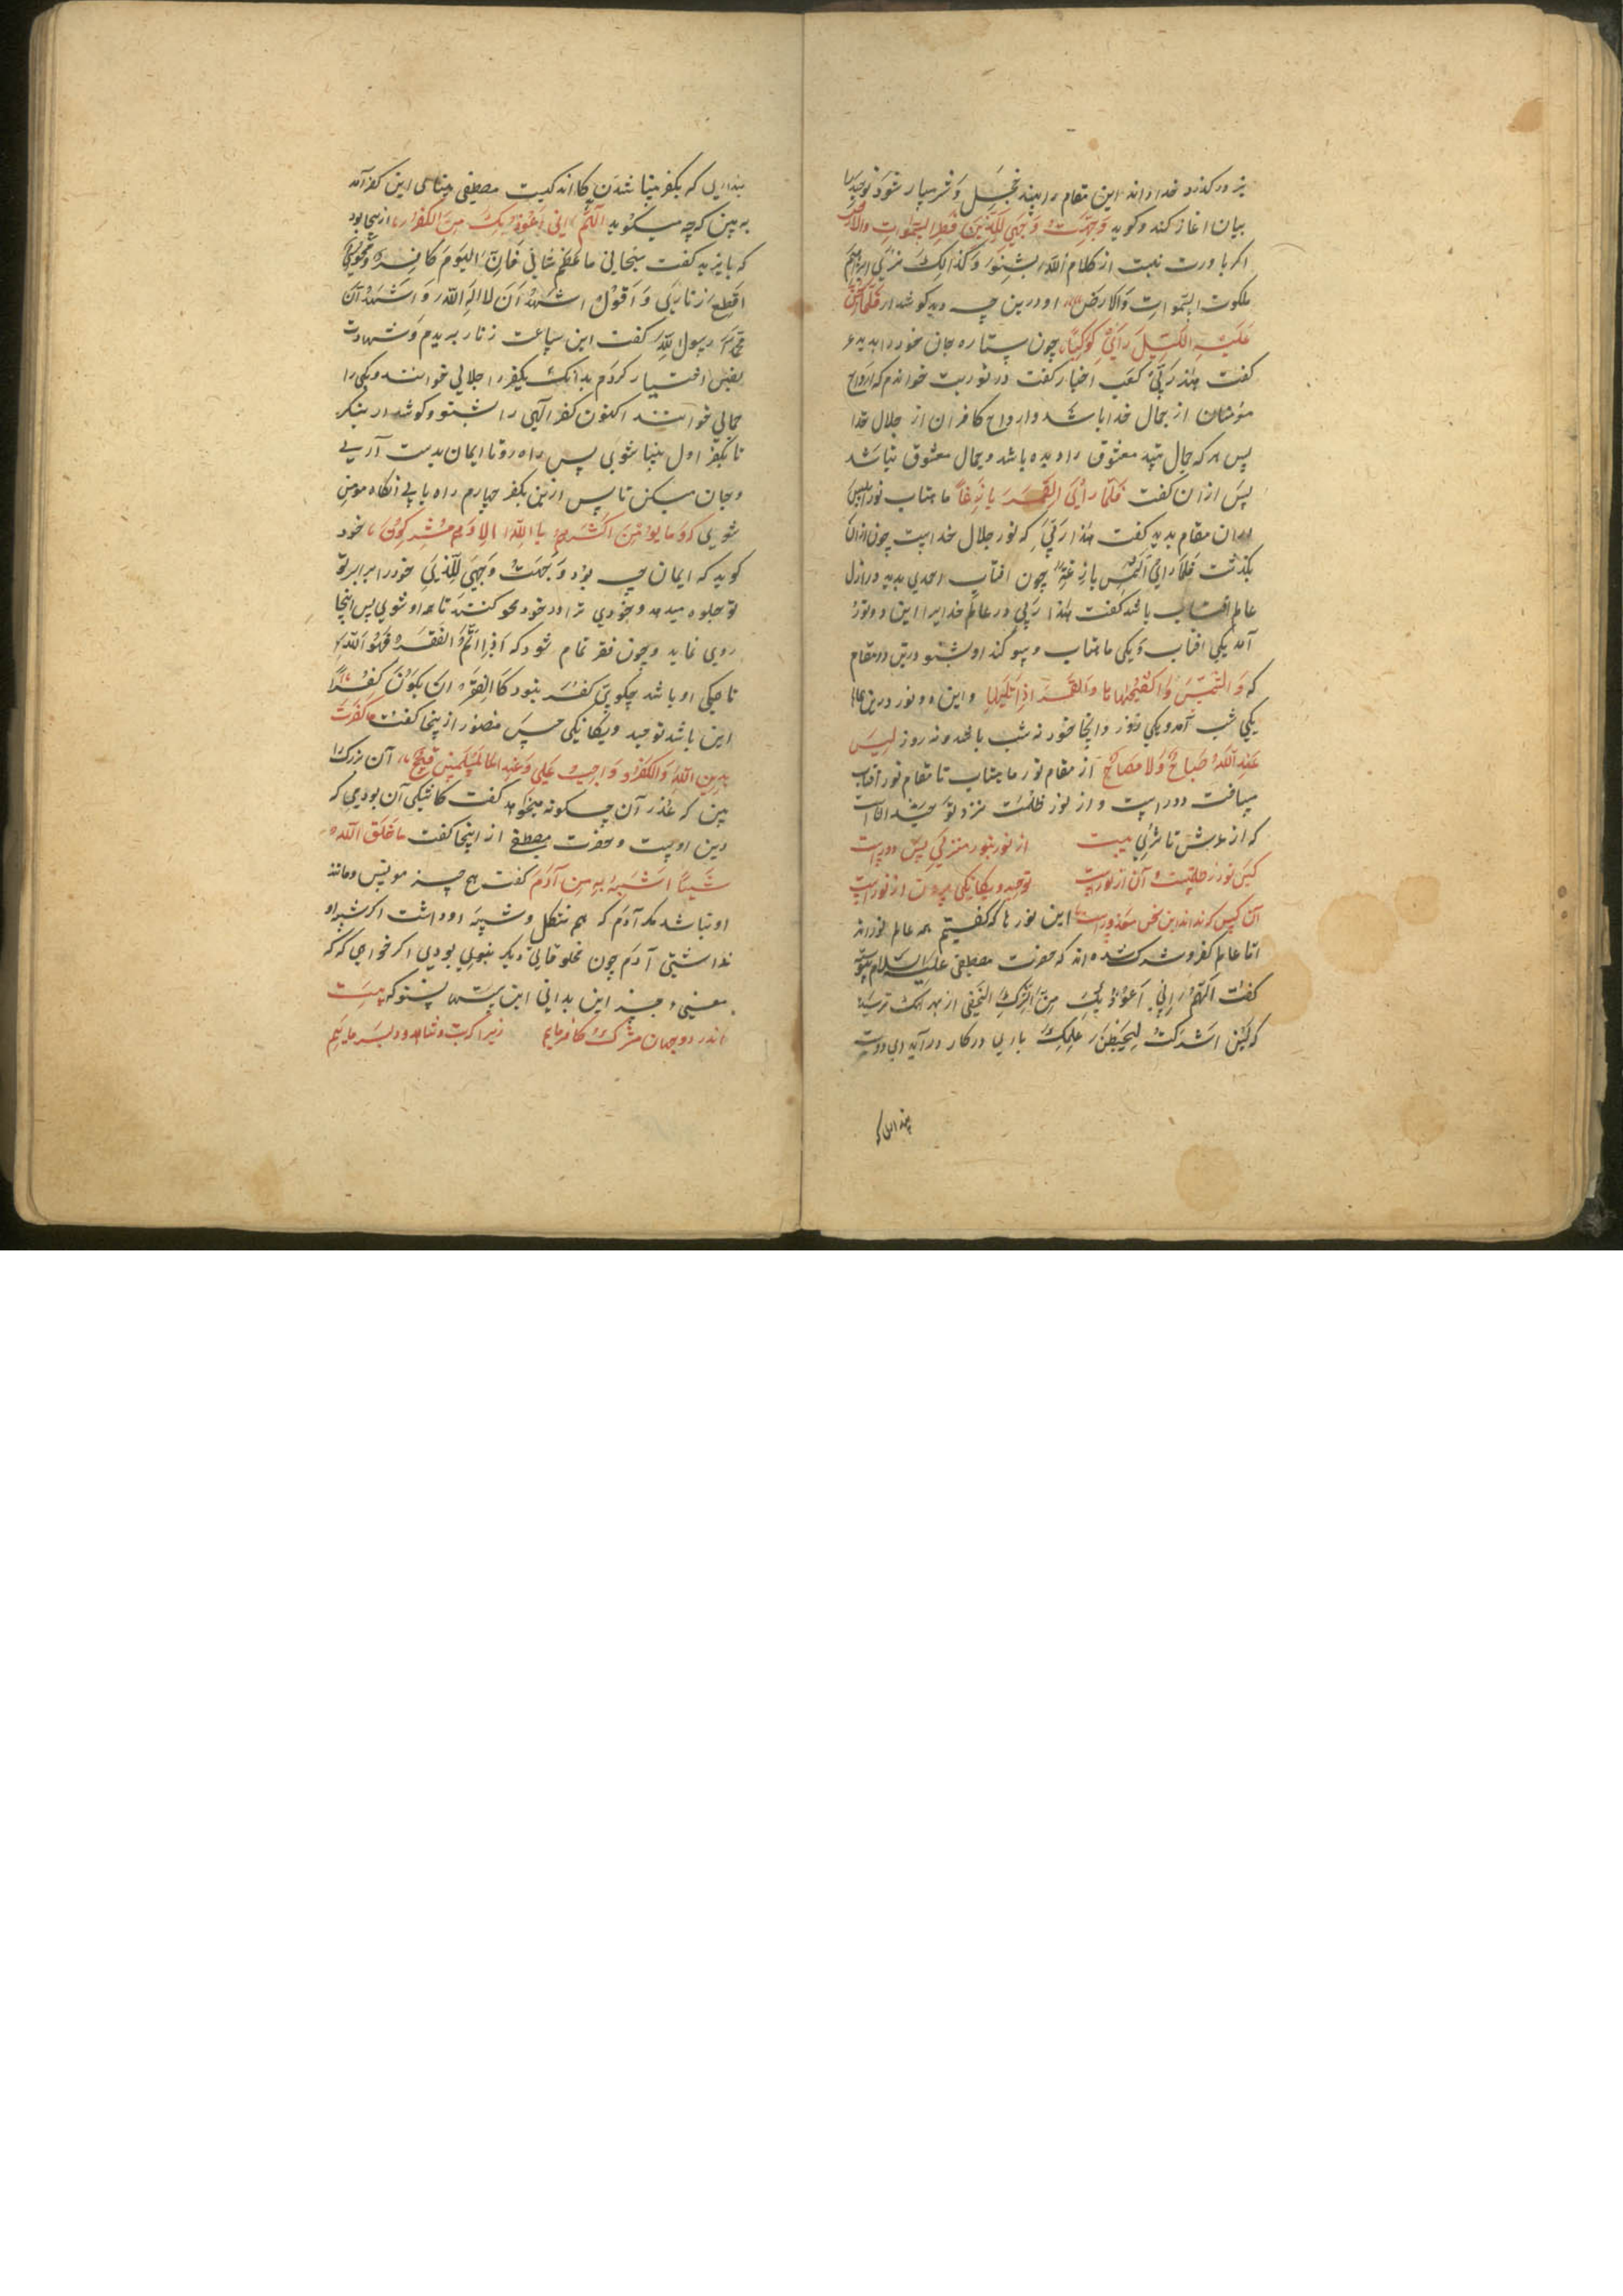 نیز درگذرد خدا داند این مقام را بیند خجل و شرمسار شود توحید را
بیان اغاز کند و کوید وَجَّهتُ وَجهیَ لِلَّذی فَطَرَ السَّمواتِ وَالارض
اکر باورت نیست از کلام الله بشنو وَ کذالِکَ نُری ابراهیم
ملکوت السَّمواتِ وَالارض او درین چه دید کوشدار فَلَمّا جَنَّ
عَلَیهِ اللَّیلَ رَایَ کَوکَباً چون ستاره جان خود را بدید
کفت هذا رَبّی کعب اخبار کفت در توریت خواندم که ارواح
مؤمنان از جمال خدا باشد وارواح کافران از جلال خدا
پس هر که جمال معشوق را دیده باشد وجمال معشوق نباشد
پس از ان کفت فَلَمّا رأیَ القَمَرَ بازِغاً ماهتاب نور ابلیس
ان مقام بدید کفت هذا رَبّی که نور جلال خداست چون از ان
بگذشت فلمّا رایَ الشمس بازغة چون افتاب احمدی بدید در ازل
عالم افتاب باشد کفت هذا ربی در عالم خدایرا این دو نور
آمد یکی افتاب و یکی ماهتاب و سوکند او بشنو درین دو مقام
که وَ الشَّمسِ وَ ضُحیها وَالقَمَرَ اِذا تَلَیها واین دو نور درین عالم
یکی شب آمد و یکی روز وانجا خود نه شب باشد و نه روز لَیسَ
عَندَ اللهِ صَباحٌ وَلا مَساءٌ از مقام نور ماهتاب تا مقام نور افتاب
مسافت دور است و از نور ظلمت نزد تو
که از عرش تا ثری نیست از نور بنور منزلی بس دور است
کس نور ز ظلمت و آن از نور است توحید و یکانکی برون از نور است
آن کس که نداند این سخن معذور است این نور ها که کفتیم همه عالم نور اند
امّا عالم کفر و شرک شده اند که حضرت مصطفی علیه السلام
کفت اَللّهُمَّ اِنّی اَعُوذُ بِکَ مِنَ الشِّرکِ الخَفی از بهر آنک ترسید
که لَئِن اَشرَکتَ لَیَحبَطَنَّ عَمَلُکَ با وی در کار در آید ای دوست
پنداری
پنداری که بکفر بینا شدن کار اندکیست مصطفی این کفر آمد
ببین که چه میکوید اَللّهُمَّ اِنّی اَعُوذُ بِکَ مِنَ الکُفر از اینجا بود
که بایزید کفت سبحانی ما اعظم شانی فاِنَّ الیَومَ کافِرٌ وَ مجوسی
اَقطَعُ زُنّاری وَ اَقُولُ اَشهَدُ اَن لا اِلهَ الّا الله وَ اَشهَدُ اَنَّ
محمّداً رسول الله کفت این ساعت زنار بریدم و شهادت
بغیب اختیار کردم بدانک یک کفر را جلالی خوانند و یکی را
جمالی خوانند اکنون کفر الهی را بشنو و کوشدار بنکر
تا بکفر اول بینا شوی پس راه رو تا ایمان بدست آری
وجان میکن تا پس ازین بکفر چهارم راه یابی انکاه مومن
شوی که وَ ما یُؤمِنُ اَکثَرُهُم بِاللهِ اِلّا وَ هُم مُشرِکُونَ خود
کوید که ایمان چه بود وَجَّهتُ وَجهیَ لِلَّذی خود را برابر تو
تو جلوه میدهد و خودی ترا در خود محو کنند تا همه او شوی پس اینجا
روی نماید و چون فقر تمام شود که اِذا تَمَّ الفَقرُ فَهُوَ الله
تا همکی او باشد چکویی کفر بنود کادَ الفَقرُ ان یَکُونَ کُفراً
این باشد توحید و یکانکی حسین منصور از ینجا کفت کَفَرتُ
بِدینِ اللهِ وَ الکُفرُ واجِبٌ عَلَیَّ وَ عِندَ المُسلِمینَ قَبیحٌ آن بزرک را
بین که عذر آن چکونه میخواهد کفت کاشکی آن بودمی که
دین اوست و حضرت مصطفی از اینجا کفت ما خَلَقَ اللهُ
شَیئاً اَشبَهُ بِهِ مِن آدَمَ کفت هیچ چیز مونس و مانند
او نباشد مکر آدم که هم شکل و شبه او داشت اکر شبه او
نداشتی آدم چون مخلوقاتی دیکر بنودی بودی اکر خواهی که
معنی و جیز این بدانی این بیتها بشنو که بیت
اندر دو جهان مشرک و کافر ماییم زیرا که بت و شاهد و دلبر ماییم